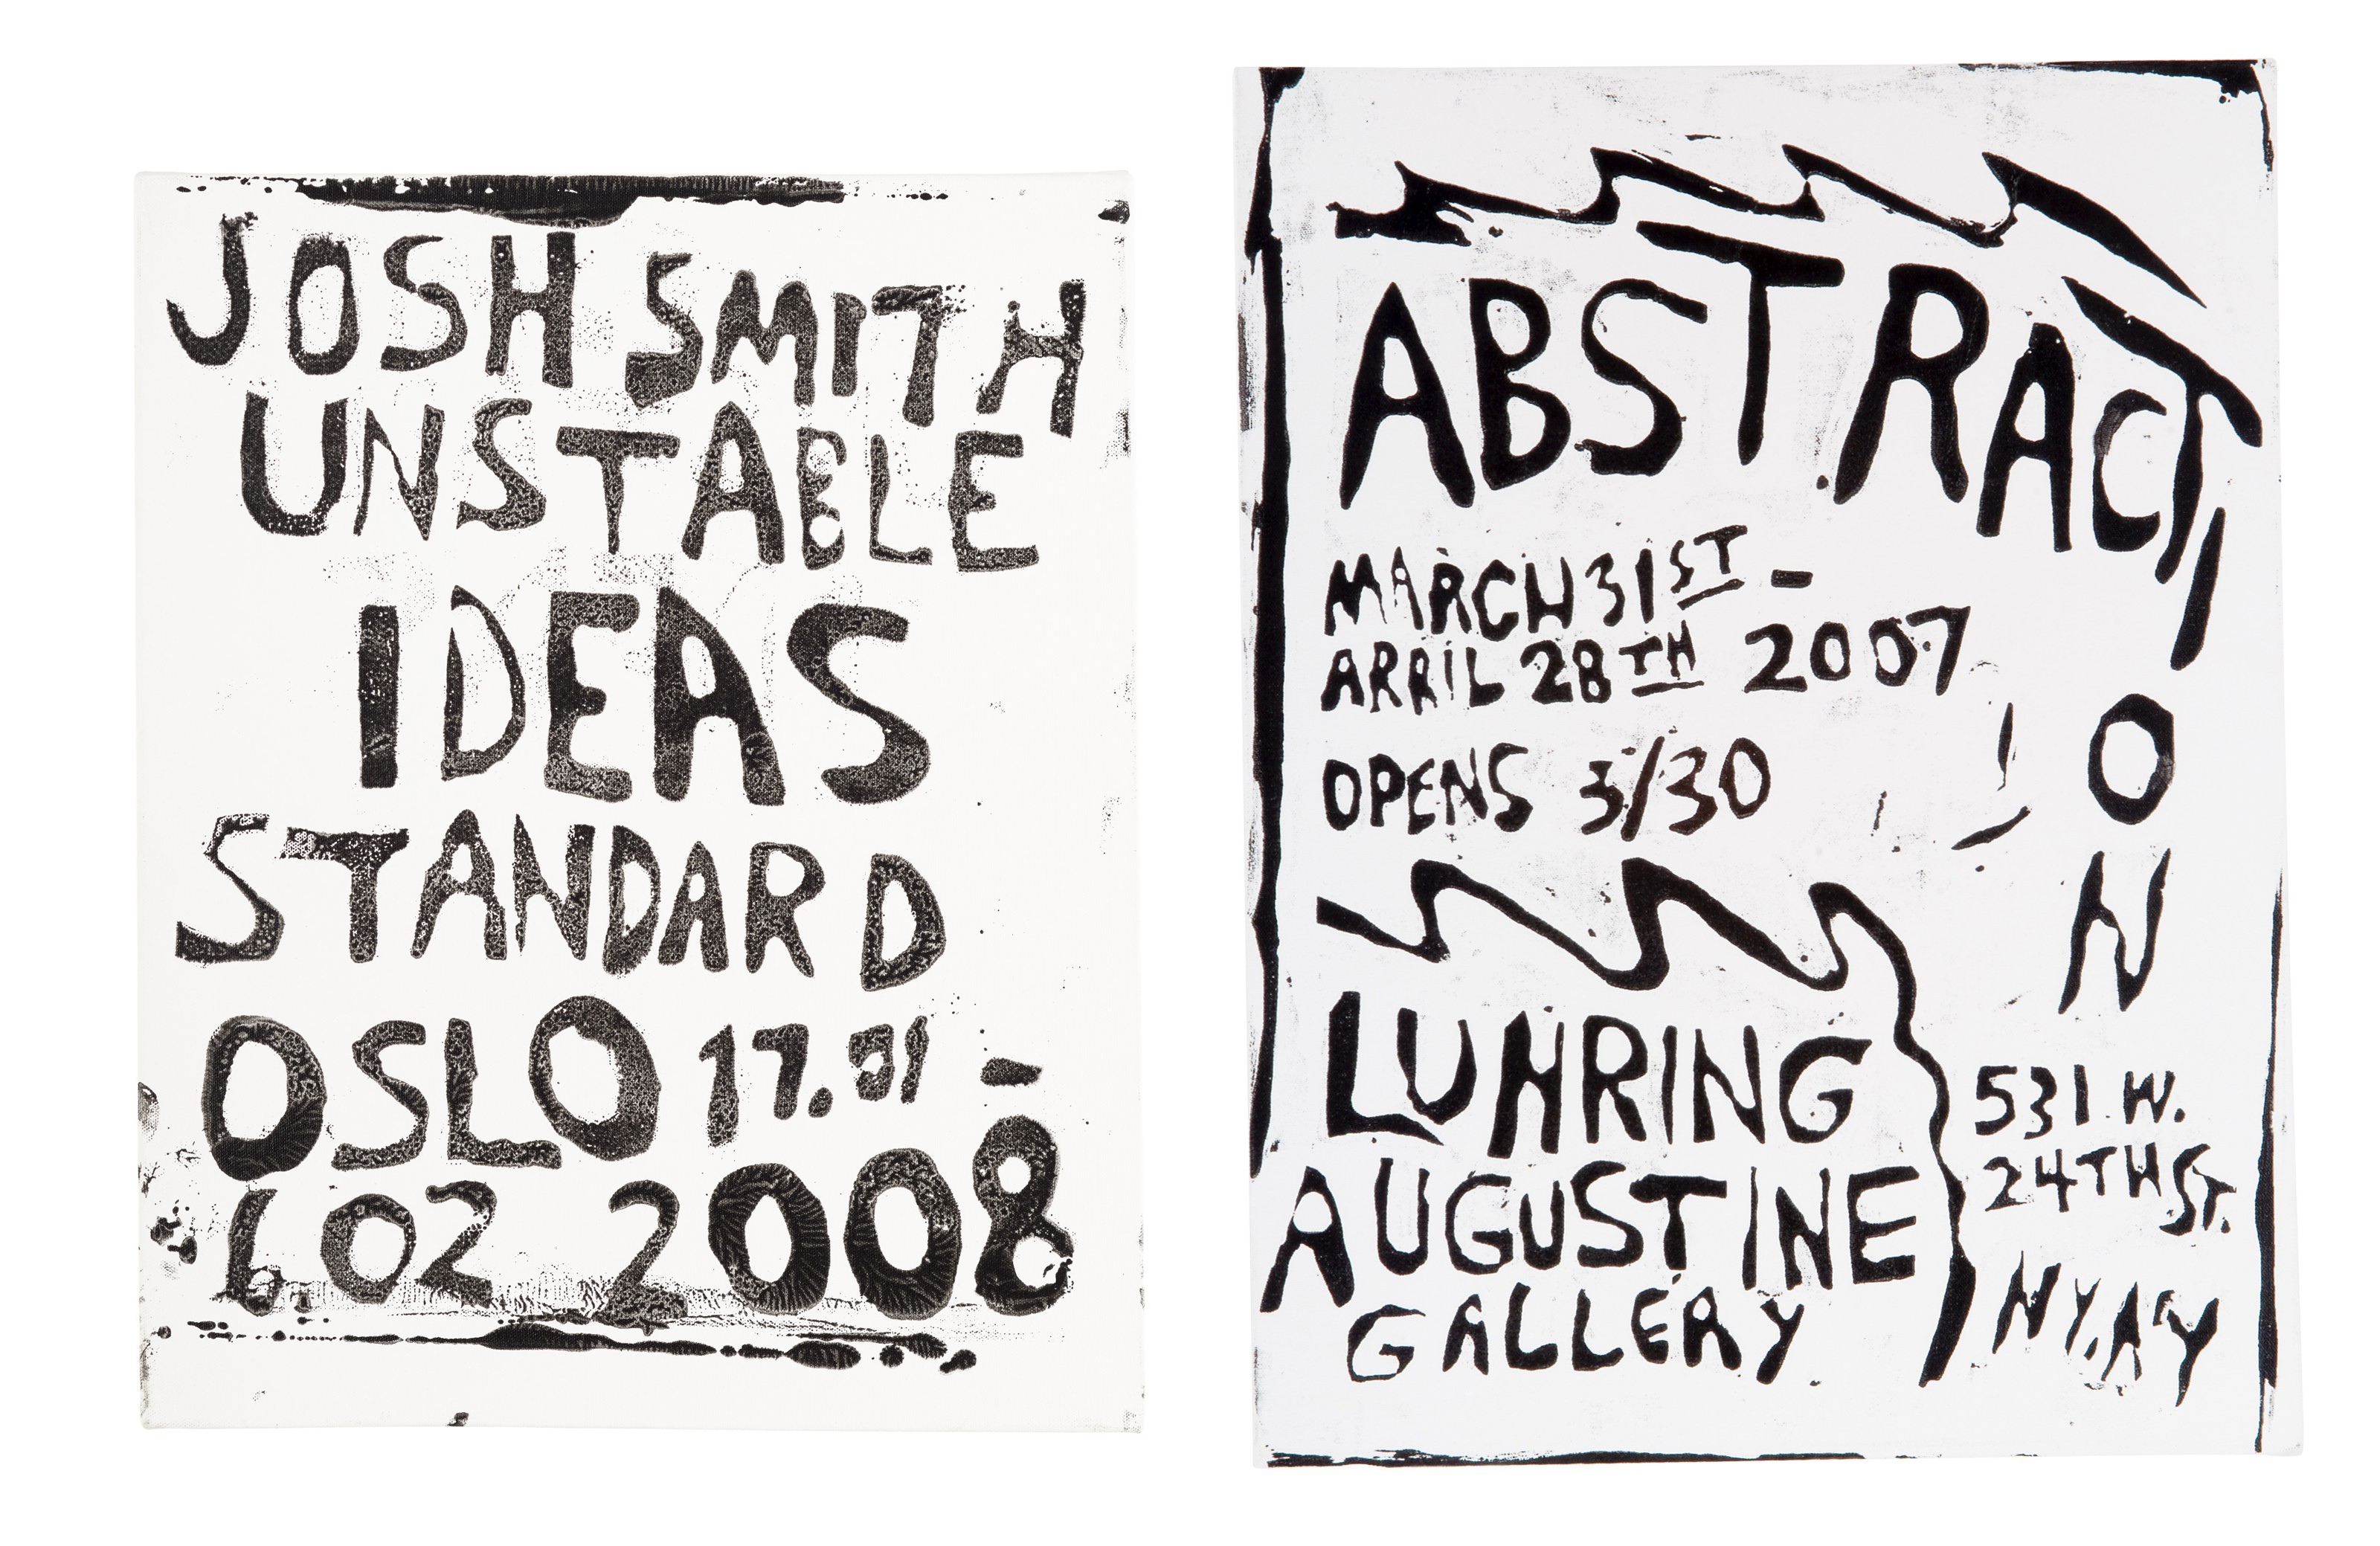 JOSH SMITH
UNSTABLE
IDEAS
STANDARD
OSLO 17.01 -
6.02 2008
ABSTRACTION
MARCH 31ST -
APRIL 28TH 2007
OPENS 3/30
LUHRING
AUGUSTINE
GALLERY
531 W.
24TH ST.
NY, NY